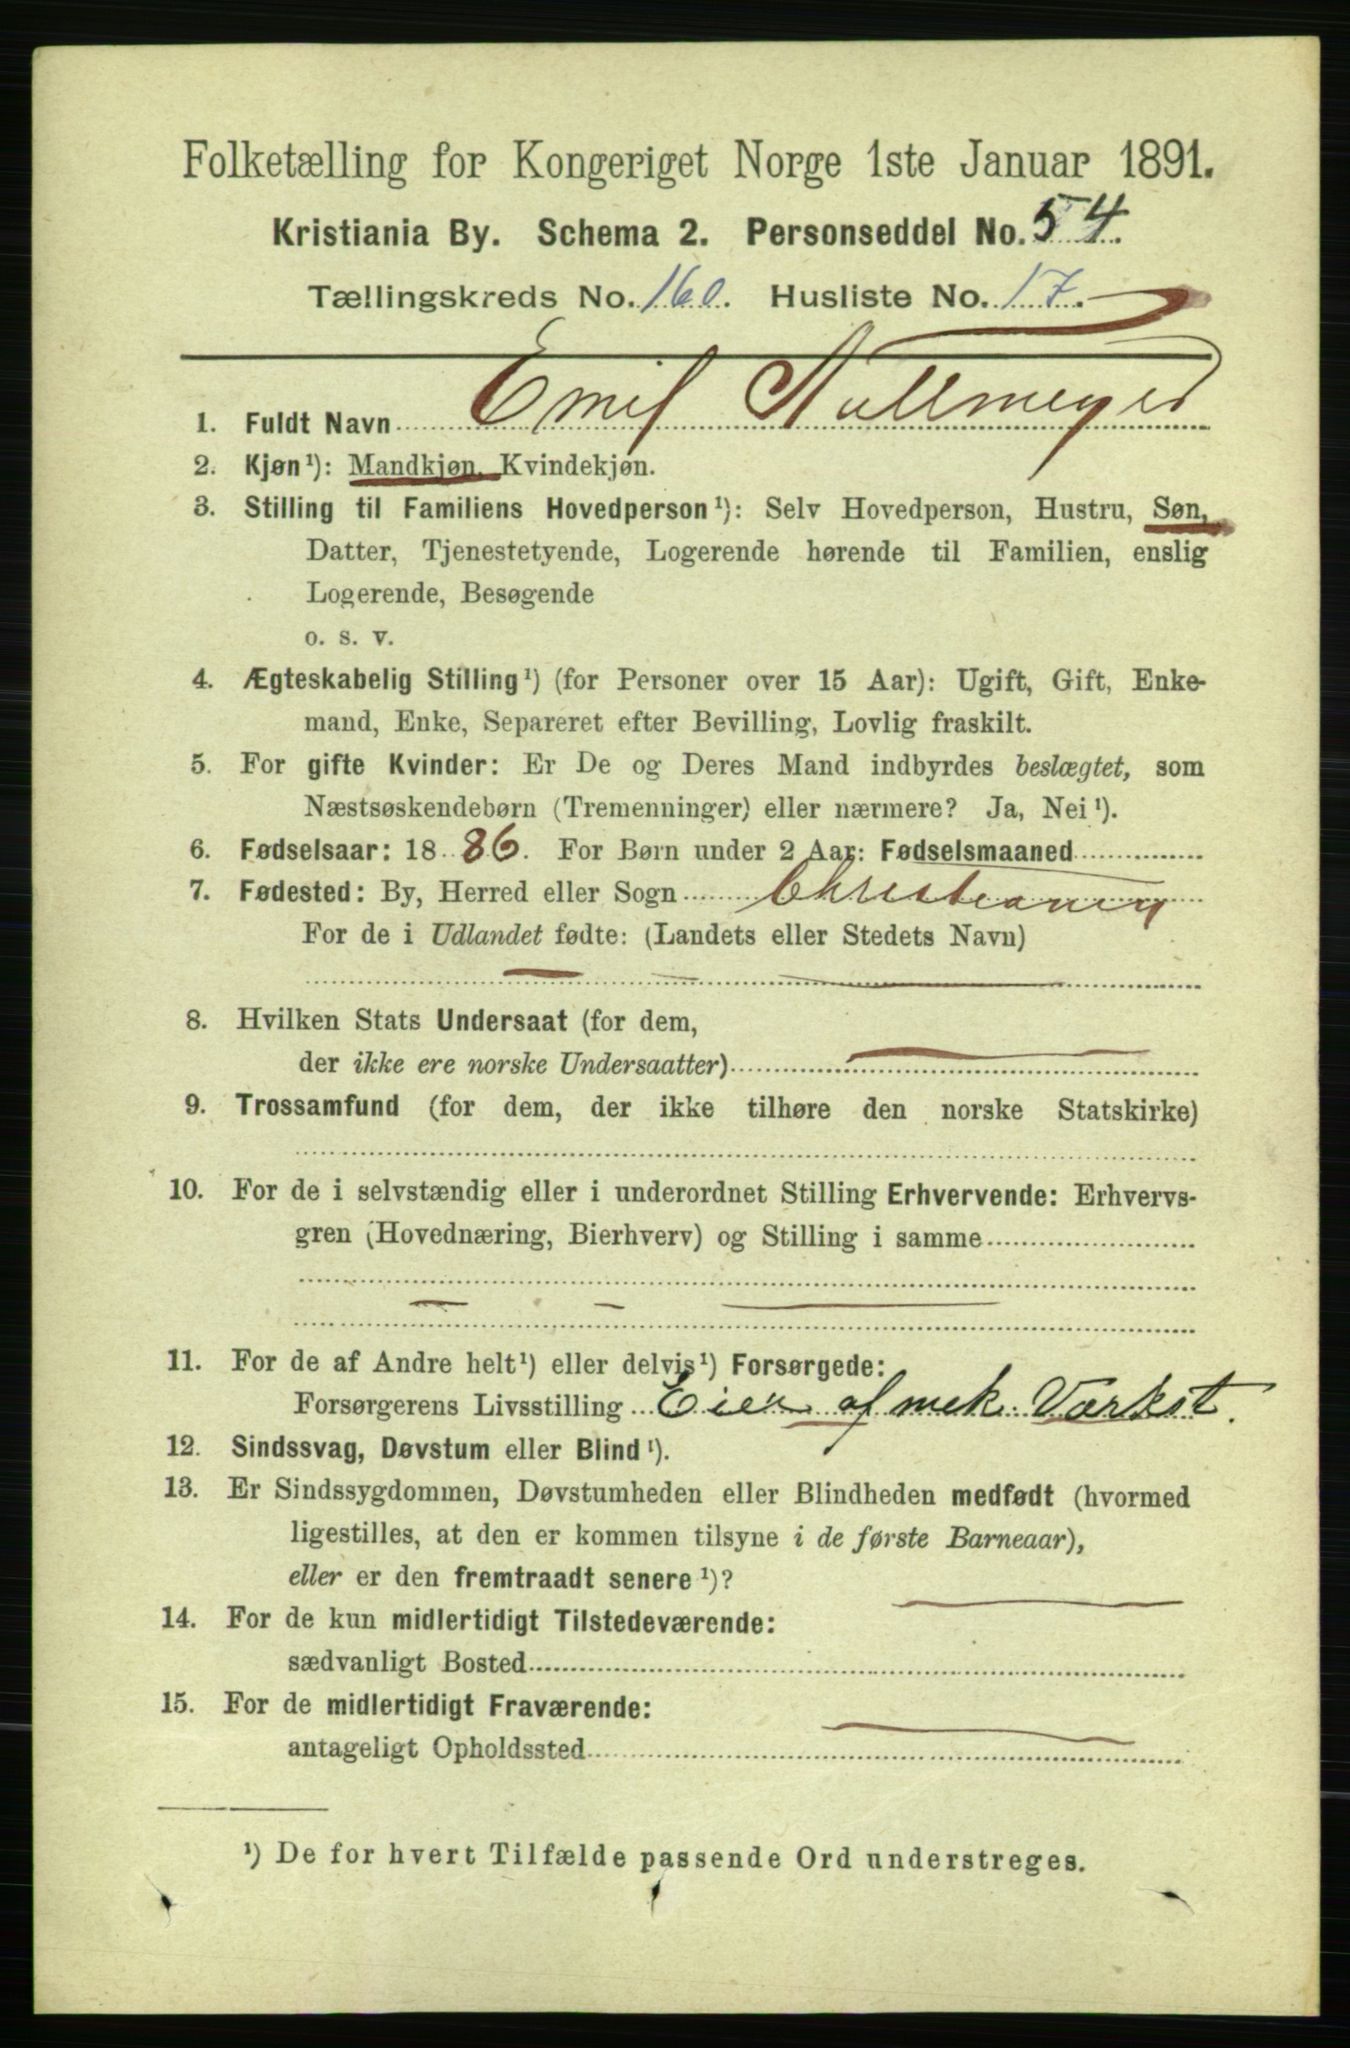 Folketælling for Kongeriget Norge 1ste Januar 1891.
Kristiania By. Schema 2. Personseddel No. 54.
Tællingskreds No. 160. Husliste No. 17.
1. Fuldt Navn Emil
2. Kjøn¹): Mandkjøn. Kvindekjøn.
3. Stilling til Familiens Hovedperson¹): Selv Hovedperson, Hustru, Søn,
Datter, Tjenestetyende, Logerende hørende til Familien, enslig
Logerende, Besøgende
o. s. v.
4. Ægteskabelig Stilling¹) (for Personer over 15 Aar): Ugift, Gift, Enke-
mand, Enke, Separeret efter Bevilling, Lovlig fraskilt.
5. For gifte Kvinder: Er De og Deres Mand indbyrdes beslægtet, som
Næstsøskendebørn (Tremenninger) eller nærmere? Ja, Nei¹).
6. Fødselsaar: 1886. For Børn under 2 Aar: Fødselsmaaned
7. Fødested: By, Herred eller Sogn Christiania
For de i Udlandet fødte: (Landets eller Stedets Navn)
8. Hvilken Stats Undersaat (for dem,
der ikke ere norske Undersaatter)
9. Trossamfund (for dem, der ikke tilhøre den norske Statskirke)
10. For de i selvstændig eller i underordnet Stilling Erhvervende: Erhvervs-
gren (Hovednæring, Bierhverv) og Stilling i samme
11. For de af Andre helt¹) eller delvis¹) Forsørgede:
Forsørgerens Livsstilling Eier af mek. Værkst.
12. Sindssvag, Døvstum eller Blind¹).
13. Er Sindssygdommen, Døvstumheden eller Blindheden medfødt (hvormed
ligestilles, at den er kommen tilsyne i de første Barneaar),
eller er den fremtraadt senere¹)?
14. For de kun midlertidigt Tilstedeværende:
sædvanligt Bosted
15. For de midlertidigt Fraværende:
antageligt Opholdssted
¹) De for hvert Tilfælde passende Ord understreges.